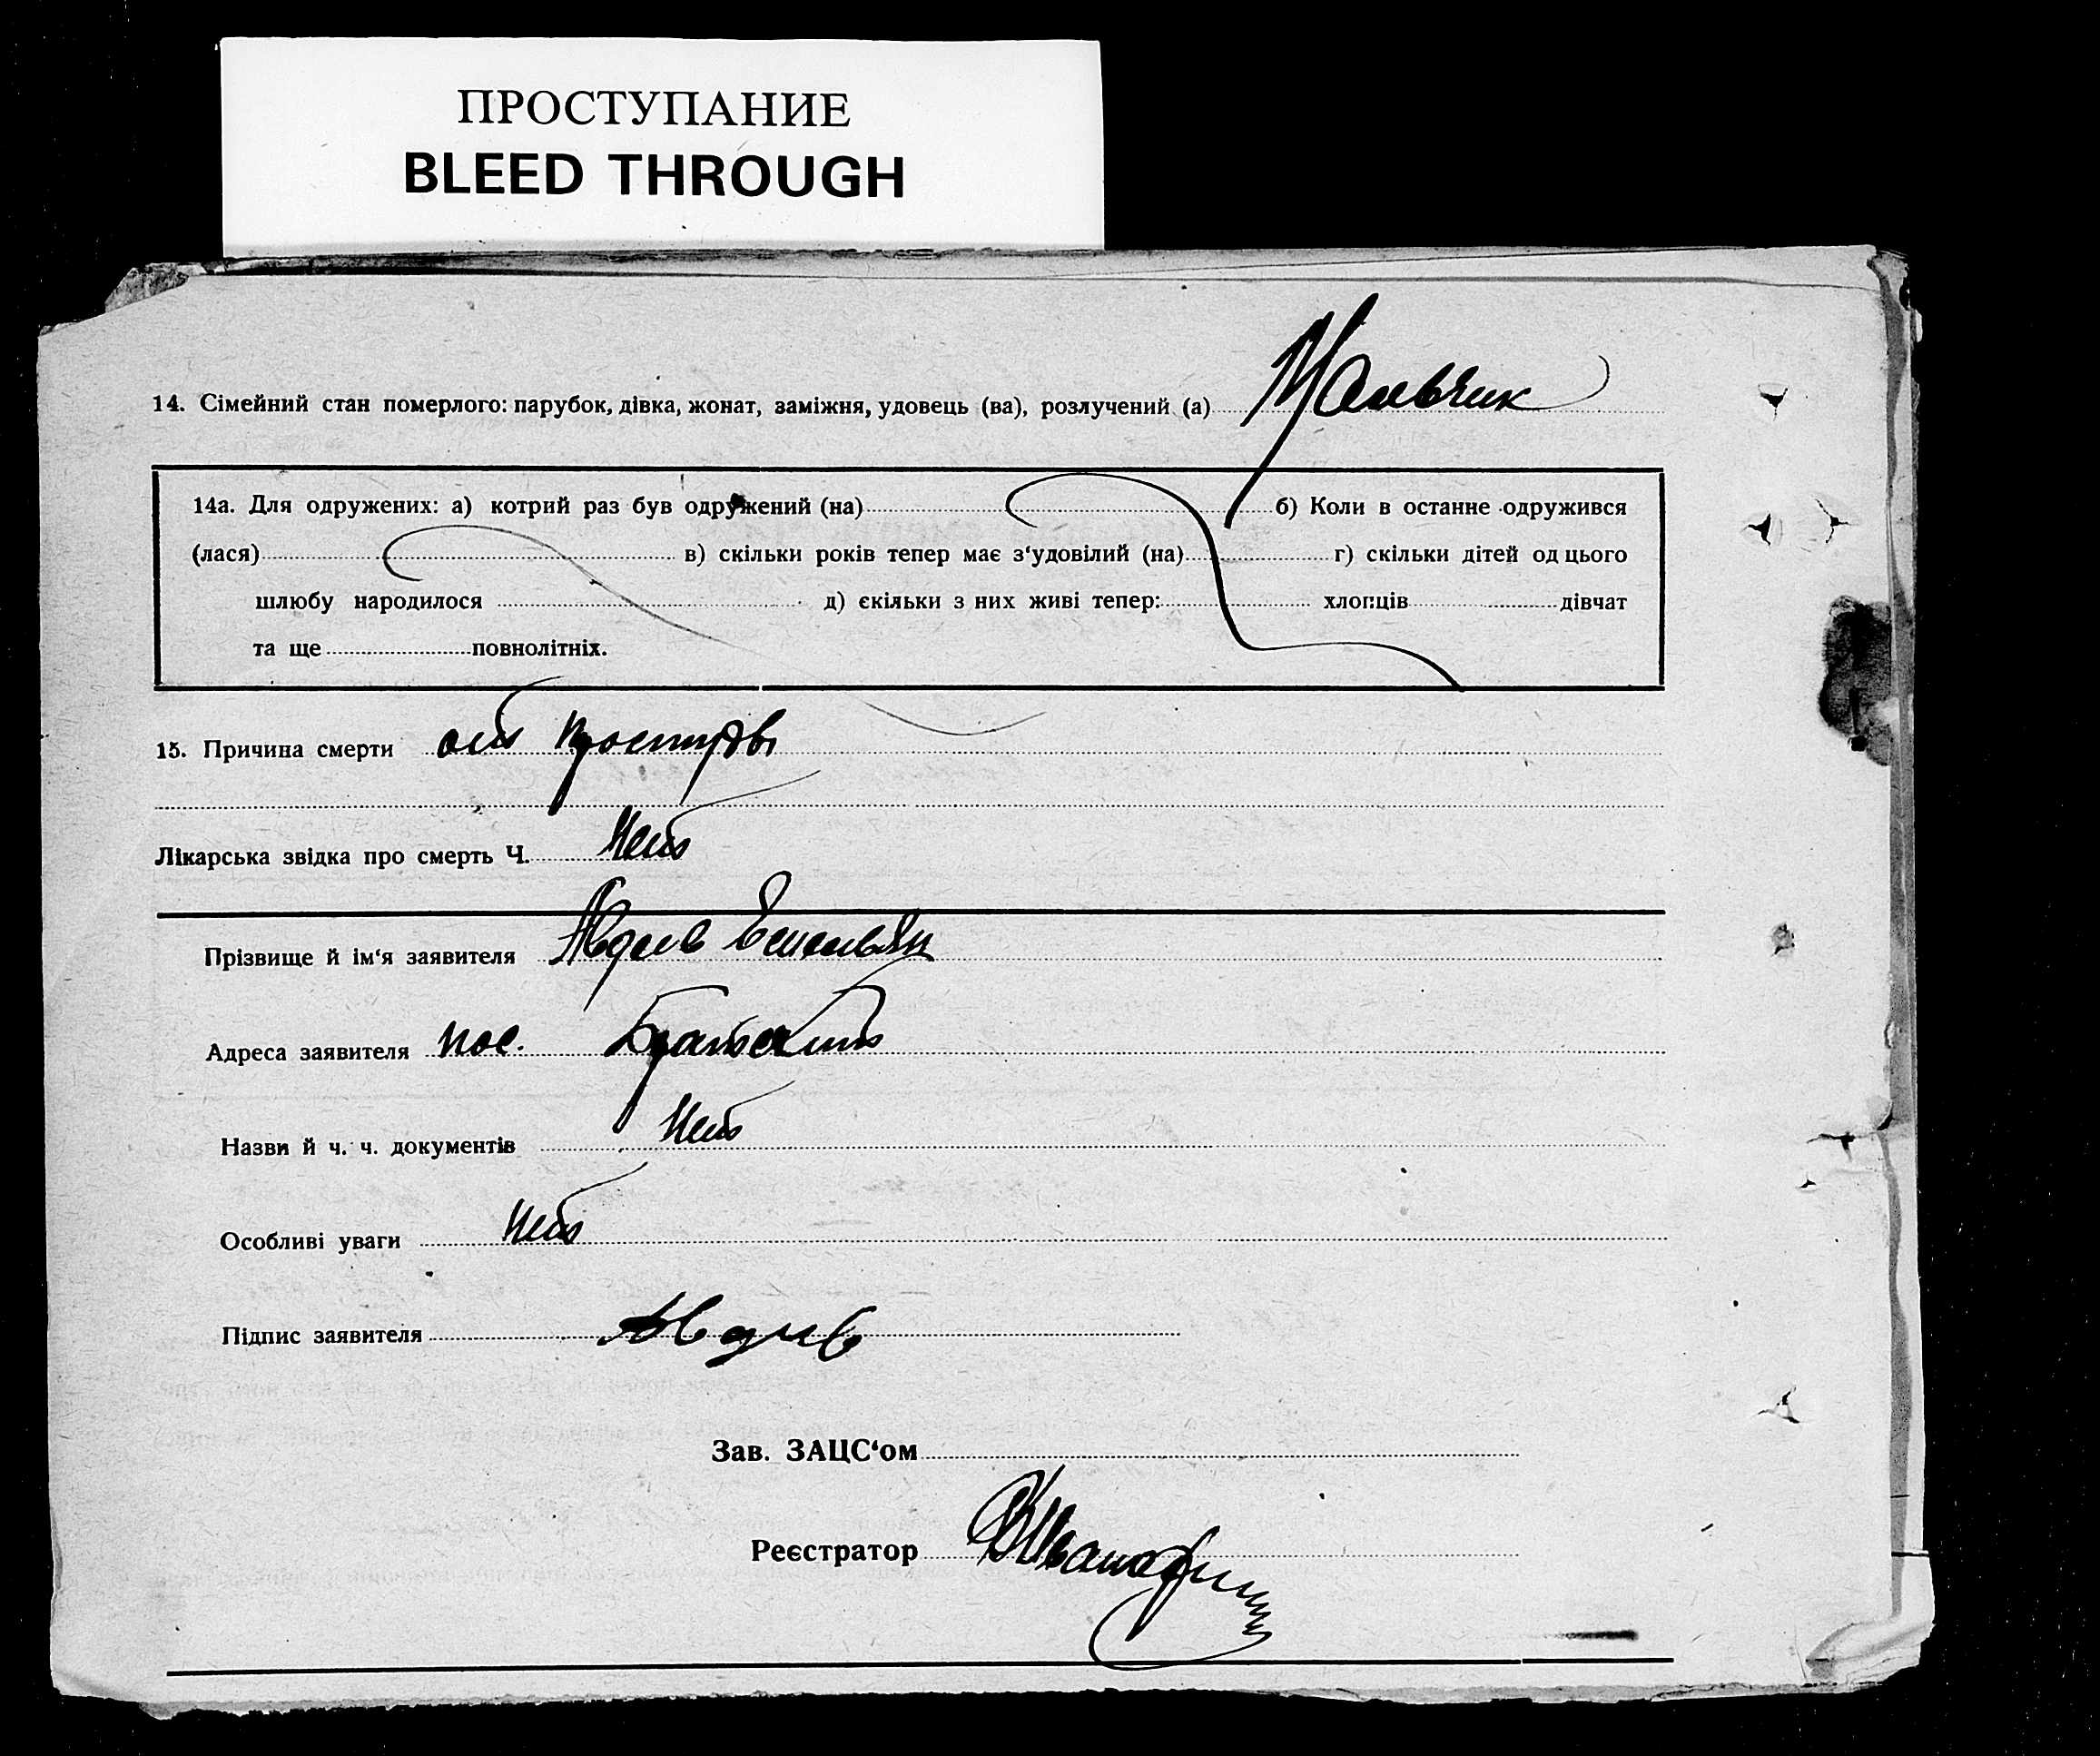 ПРОСТУПАНИЕ
BLEED THROUGH
14. Сімейний стан померлого: парубок, дівка, жонат, заміжня, удовець (ва), розлучений (а) Мальчик
14а. Для одружених: а) котрий раз був одружений (на) б) Коли в останне одружився
(лася) в) скільки років тепер має з‘удовілий (на) г) скільки дітей од цього
шлюбу народилося д) скільки з них живі тепер: хлопців дівчат
та ще повнолітніх.
15. Причина смерти от простуды
Лікарська звідка про смерть Ч. Нет
Прізвище й ім‘я заявителя Авдеев Емельян
Адреса заявителя пос. Братский
Назви й ч. ч. документів Нет
Особливі уваги Нет
Підпис заявителя Авдеев
Зав. ЗАЦС‘ом
Реєстратор